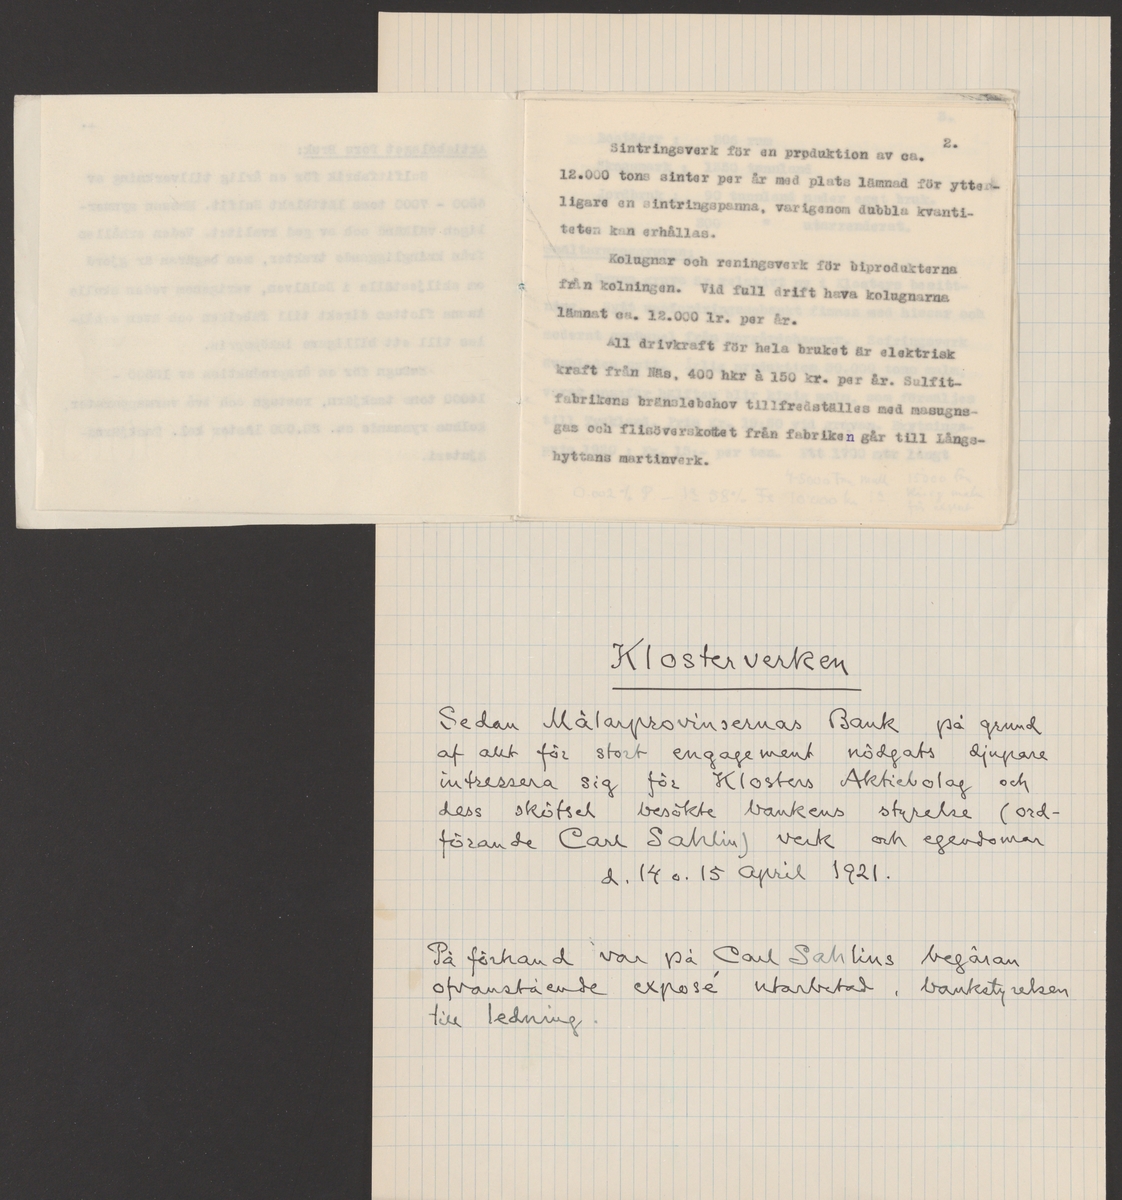 2.
Sintringsverk för en prpduktion av ca.
12.000 tons sinter per år med plats lämnad för ytter-
ligare en sintringspanna, varigenom dubbla kvanti-
teten kan erhållas.
Kolugnar och reningsverk för biprodukterna
från kolningen. Vid full drift hava kolugnarna
lämnat ca. 12.000 lr. per år.
All drivkraft för hela bruket är elektrisk
kraft från Näs, 400 hkr à 150 kr. per år. Sulfit-
fabrikens bränslebehov tillfredställes med masugns-
gas och flisöverskottet från fabriken går till Långs-
hyttans martinverk.
Klosterverken
Sedan Mälarprovinsernas Bank på grund
af allt för stort engagement nödgats djupare
intressera sig för Klosters Aktiebolag och
dess skötsel besökte bankens styrelse (ord-
förande Carl Sahlin) verk och egendomar
d. 14 o. 15 april 1921.
På förhand var på Carl Sahlins begäran
ofvanstående exposé utarbetad, bankstyrelsen
till ledning.